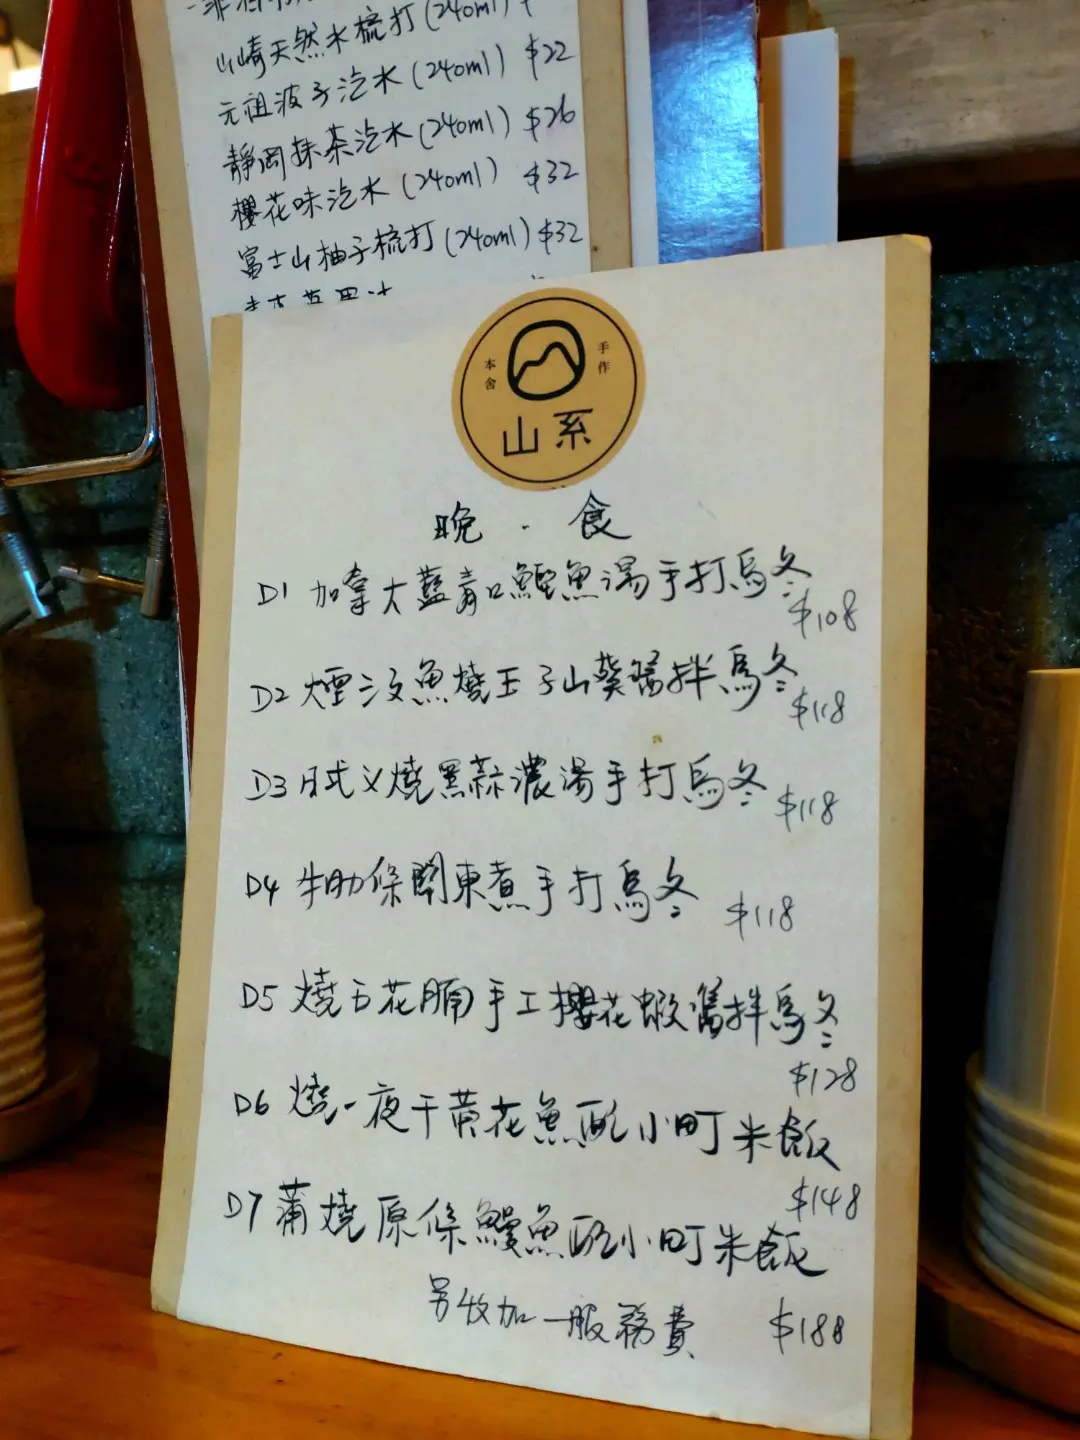 山崎天然水梳打(240ml)
元祖波子汽水(240ml) $22
靜岡抹茶汽水(240ml) $26
櫻花味汽水(240ml) $32
富士山柚子梳打(240ml) $32
本舍
手作
山系
晚．食
D1 加拿大藍青口鯤魚湯手打烏冬
$108
D2 煙三文魚燒玉子山葵醬拌烏冬
$118
D3 日式义燒黑蒜濃湯手打烏冬
$118
D4 牛肋條關東煮手打烏冬
$118
D5 燒五花腩手工櫻花蝦醬拌烏冬
$128
D6 燒一夜干黃花魚配小町米飯
$148
D7 蒲燒原條鰻魚配小町米飯
另收加一服務費 $188